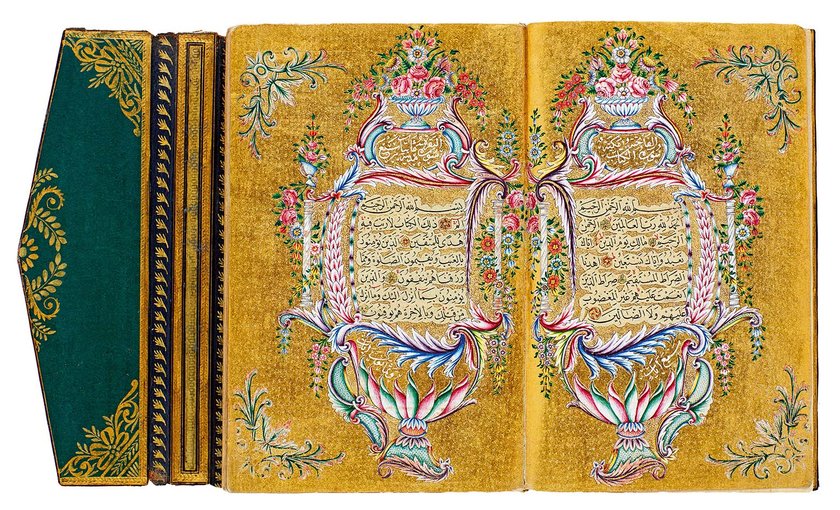 بسم الله الرحمن الرحيم
الحمد لله رب العالمين الرحمن
الرحيم مالك يوم الدين اياك
نعبد واياك نستعين اهدنا
الصراط المستقيم صراط الذين
انعمت عليهم غير المغضوب
عليهم ولا الضالين
بسم الله الرحمن الرحيم
الم ذلك الكتاب لا ريب فيه
هدى للمتقين الذين يؤمنون
بالغيب ويقيمون الصلوة ومما
رزقناهم ينفقون والذين
يؤمنون بما انزل اليك وما انزل
من قبلك وبالآخرة هم يوقنون